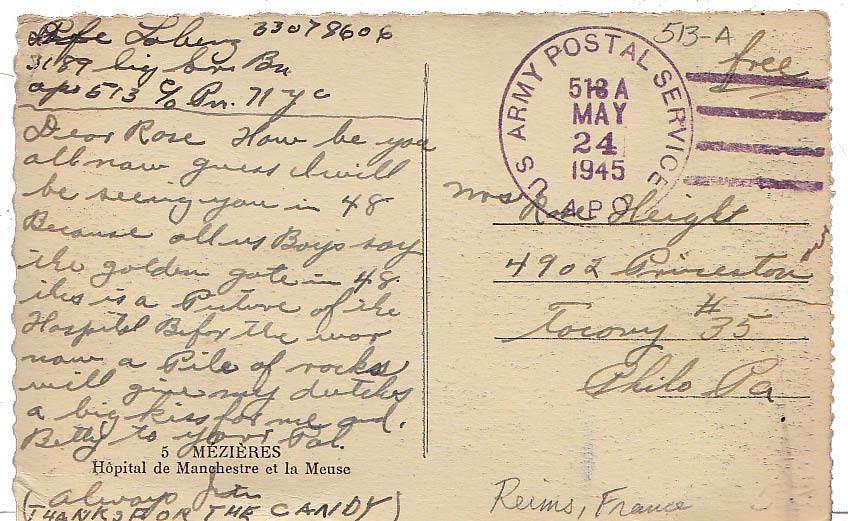 Pfc Lobenz 33078606
3189 Sig Serv Bn
apo 513 c/o Pm. N y c
Dear Rose How be you
all now guess I will
be seeing you in 48
Because all us Boys say
the golden gate in 48.
this is a Picture of the
Hospital Befor the war
now a Pile of rocks
will give my dutches
a big kiss for me and.
Betty to your Pal.
5 MÉZIÈRES
Hôpital de Manchestre et la Meuse
(always
THANKS FOR THE CANDY)
513-A
free
US ARMY POSTAL SERVICE
513 A
MAY
24
1945
A.P.O.
Mrs Rose Height
4902 Princeton
Tacony #35
Phila Pa.
Reims, France